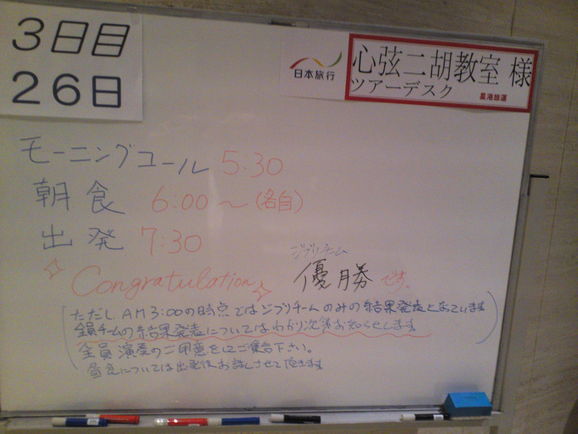 3日目
26日
日本旅行
心弦二胡教室 様
ツアーデスク
星港旅運
モーニングコール 5:30
朝食 6:00〜(各自)
出発 7:30
Congratulation
ジブリチーム
優勝です。
ただし AM3:00の時点ではジブリチームのみの結果発表となっています
全員チームの結果発表についてはわかり次第お知らせします
全員演奏のご用意をしてご集合下さい。
昼食については出発後お話しさせて頂きます